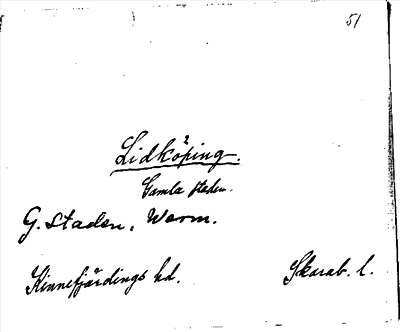 51
Lidköping.
Gamla staden.
G. Staden, Werm.
Kinnefjärdings hd. Skarab. l.